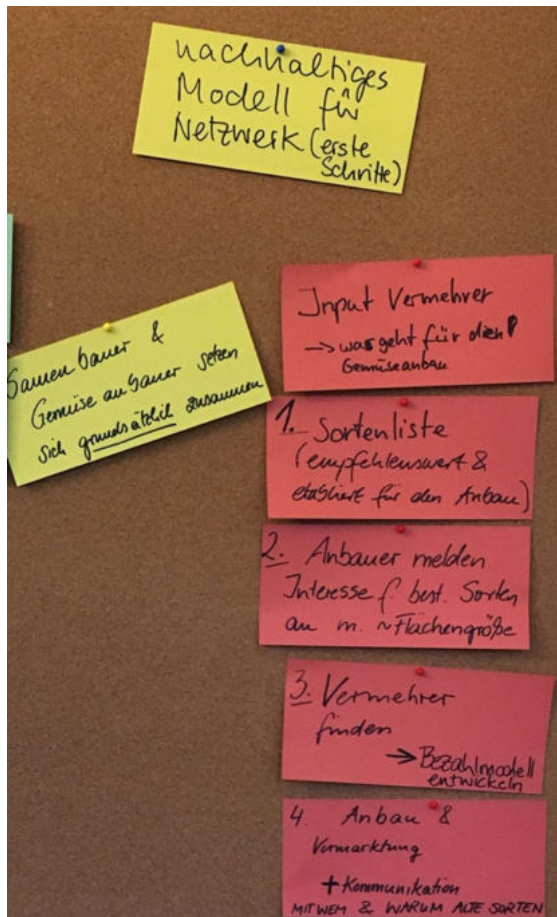 nachhaltiges
Modell für
Netzwerk (erste
Schritte)
Samenbauer &
Gemüseanbauer setzen
sich grundsätzlich zusammen
Input Vermehrer
→ was geht für dich?
Gemüseanbau
1. Sortenliste
(empfehlenswert &
etabliert für den Anbau)
2. Anbauer melden
Interesse f. best. Sorten
an m. ~Flächengröße
3. Vermehrer
finden
→ Bezahlmodell
entwickeln
4. Anbau &
Vermarktung
+ Kommunikation
MIT WEM & WARUM ALTE SORTEN